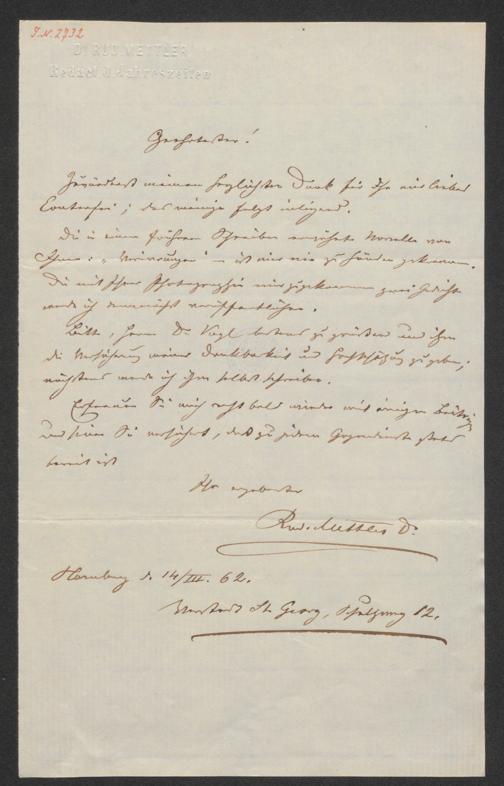 I.N. 2932
Dr. RUD. METTLER
Redact. d. Jahreszeiten
Geehrtester!
Zuvörderst meinen herzlichsten Dank für Ihr mir liebes
Conterfei; das meinige folgt inliegend.
Die in einem früheren Schreiben erwähnte Novelle von
Ihnen: „Verirrungen" – ist mir nie zu Händen gekommen.
Die mit Ihrer Photographie mir zugekommenen zwei Gedichte
werde ich demnächst veröffentlichen.
Bitte, Herrn Dr. Vogl bestens zu grüßen und ihm
die Versicherung meiner Dankbarkeit und Hochschätzung zu geben;
nächstens werde ich ihm selbst schreiben.
Erfreuen Sie mich recht bald wieder mit einigen Beiträgen
und seien Sie versichert, daß zu jedem Gegendienste stets
bereit ist
Ihr ergebenster
Rud. Mettler Dr.
Hamburg d. 14/III. 62.
Vorstadt St. Georg, 12.